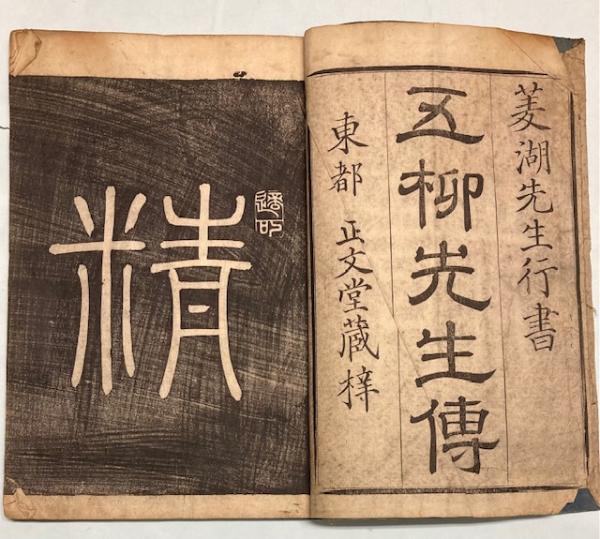 菱湖先生行書
五柳先生傳
東都 正文堂蔵梓
精